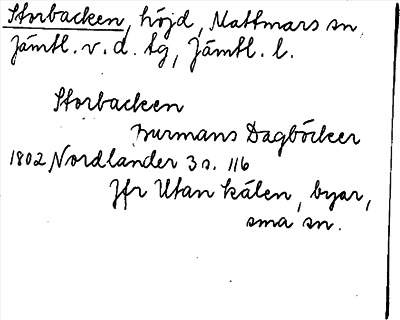 Storbacken, höjd, Mattmars sn,
Jämtl. v. d. tg, Jämtl. l.
Storbacken
Burmans Dagböcker
1802 Nordlander 3 s. 116
Jfr Utan kälen, byar,
sma sn.